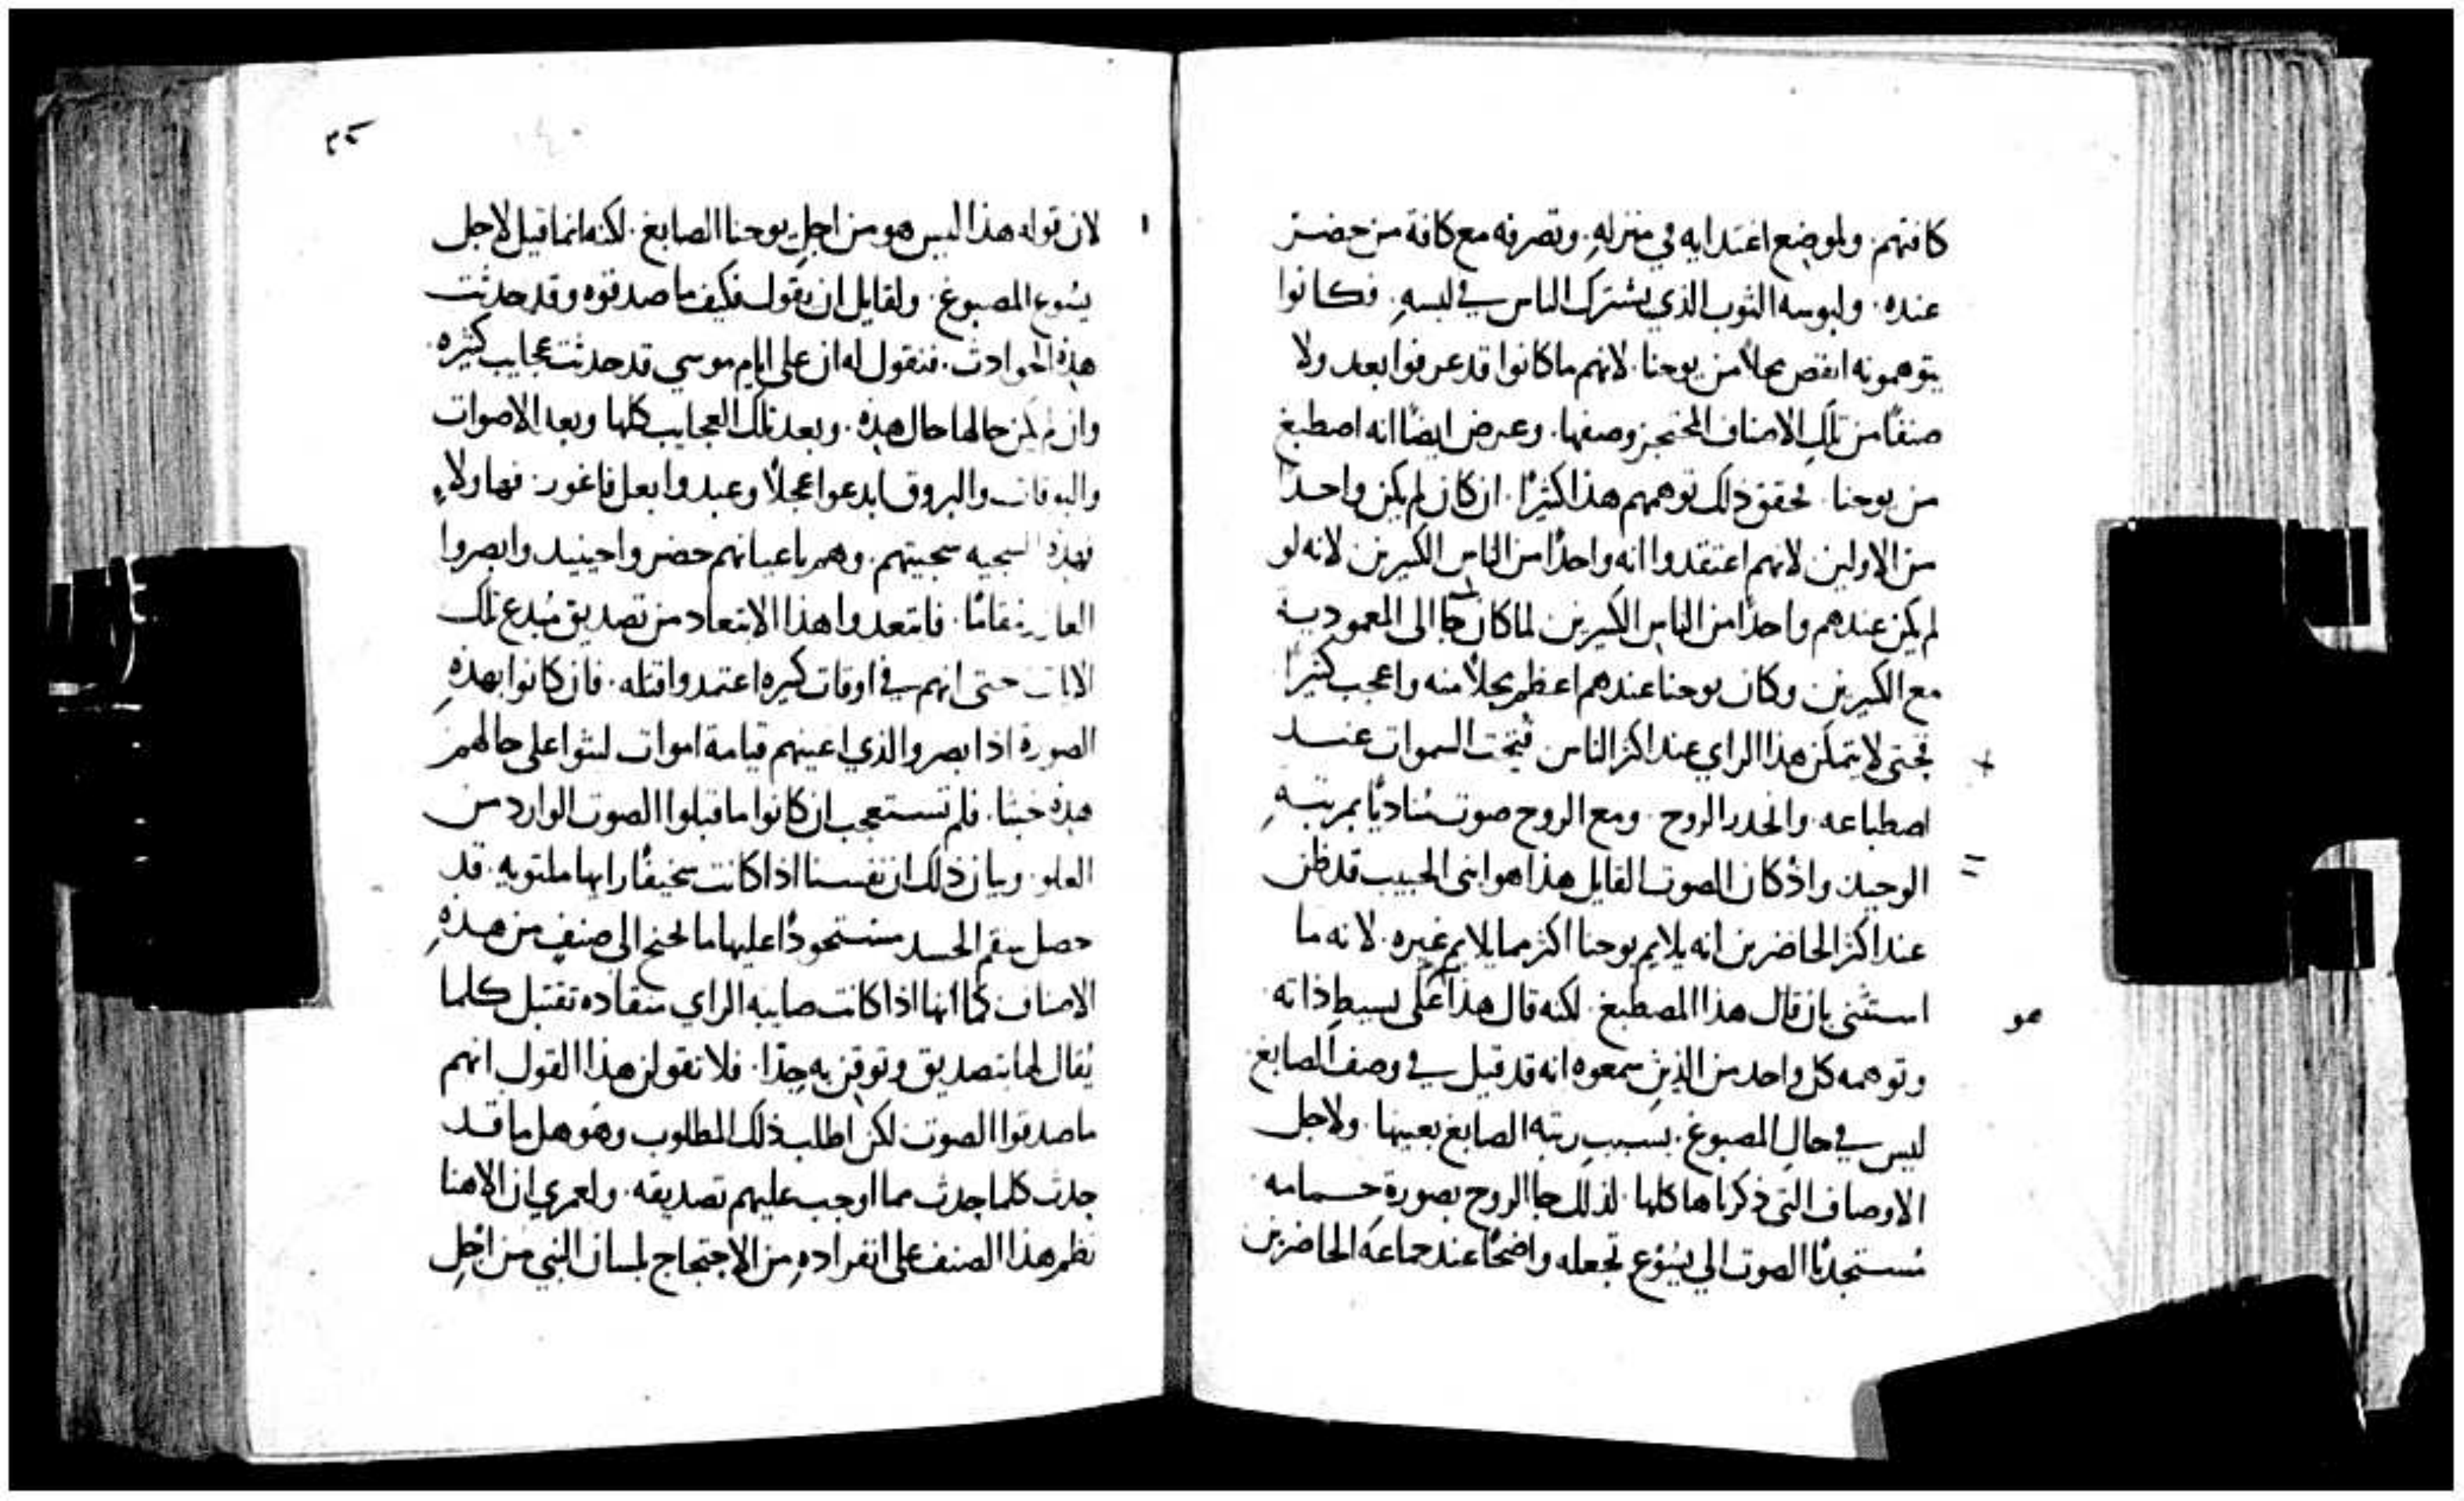 كافتهم. ولموضع اغتدايه في منزله. وتصرفه مع كافة من حضر
عنده. ولبوسه الثوب الذي يشترك الناس في لبسه. فكانوا
يتوهمونه انقص محلاً من يوحنا. لانهم ما كانوا قد عرفوا بعد ولا
صنفًا من تلك الاصناف المحتجز وصفها. وعرض ايضًا انه اصطبغ
من يوحنا. فحقق ذلك توهمهم هذا كثيرًا. ان كان لم يكن واحدًا
من الاولين لانهم اعتقدوا انه واحدًا من الناس الكثيرين لانه لو
لم يكن عندهم واحدًا من الناس الكثيرين لما كان جا الى المعمودية
مع الكثيرين وكان يوحنا عندهم اعظم محلاً منه واعجب كثيرًا
فحتى لا يتمكن هذا الراي عند اكثر الناس فتحت السموات عند
اصطباغه. وانحدر الروح. ومع الروح صوت مناديًا بمرتبة
الوحيد واذ كان الصوت القايل هذا هو ابني الحبيب قد ظن
عند اكثر الحاضرين انه يلايم يوحنا اكثر مما يلايم غيره. لانه ما
استثنى بان قال هذا المصطبغ. لكنه قال هذا على بسيط ذاته
هو
وتوهمه كل واحد من الذين سمعوه انه قد قيل في وصف الصابغ
ليس في حال المصبوغ. بسبب رتبة الصابغ بعينها. ولاجل
الاوصاف التي ذكرناها كلها. لذلك جا الروح بصورة حمامه
مستجذبًا الصوت الي يسوع تجعله واضحًا عند جماعة الحاضرين
لان قوله هذا ليس هو من اجل يوحنا الصابغ. لكنه انما قيل لاجل
يسوع المصبوغ. ولقايل ان يقول فكيف ما صدقوه وقد حدثت
هذه الحوادث. فنقول له ان علي ايام موسي قد حدثت عجايب كثيره
وان لم يكن حالها حال هذه. وبعد تلك العجايب كلها وبعد الاصوات
والبوقات والبروق ابدعوا عجلاً وعبدوا بعل فاغور. فهاولاء
بهذه السجيه سجيتهم. وهم باعيانهم حضروا حينيد وابصروا
العازر مقامًا. فابتعدوا هذا الابتعاد من تصديق مبدع تلك
الايات حتى انهم في اوقات كثيره اعتمدوا قتله. فان كانوا بهذه
الصورة اذ ابصروا لذي اعينهم قيامة اموات لبثوا على حالهم
هذه خبثا. فلم تستعجب ان كانوا ما قبلوا الصوت الوارد من
العلو. وبيان ذلك ان نفسنا اذا كانت سخيفًا رايها ملتويه. قد
حصل سقم الحسد مستحوذًا عليها ما تجنح الى صنف من هذه
الاصناف كما انها اذا كانت صايبه الراي منقاده تقتبل كلما
يقال لها بتصديق وتوقن به جدًا. فلا نقولن هذا القول انهم
ما صدقوا الصوت لكن اطلب ذلك المطلوب وهو هل ما قد
حدث كلما حدث مما اوجب عليهم تصديقه. ولعمري ان الاهنا
نظم هذا الصنف على انفراده من الاحتجاج بلسان النبي من اجل